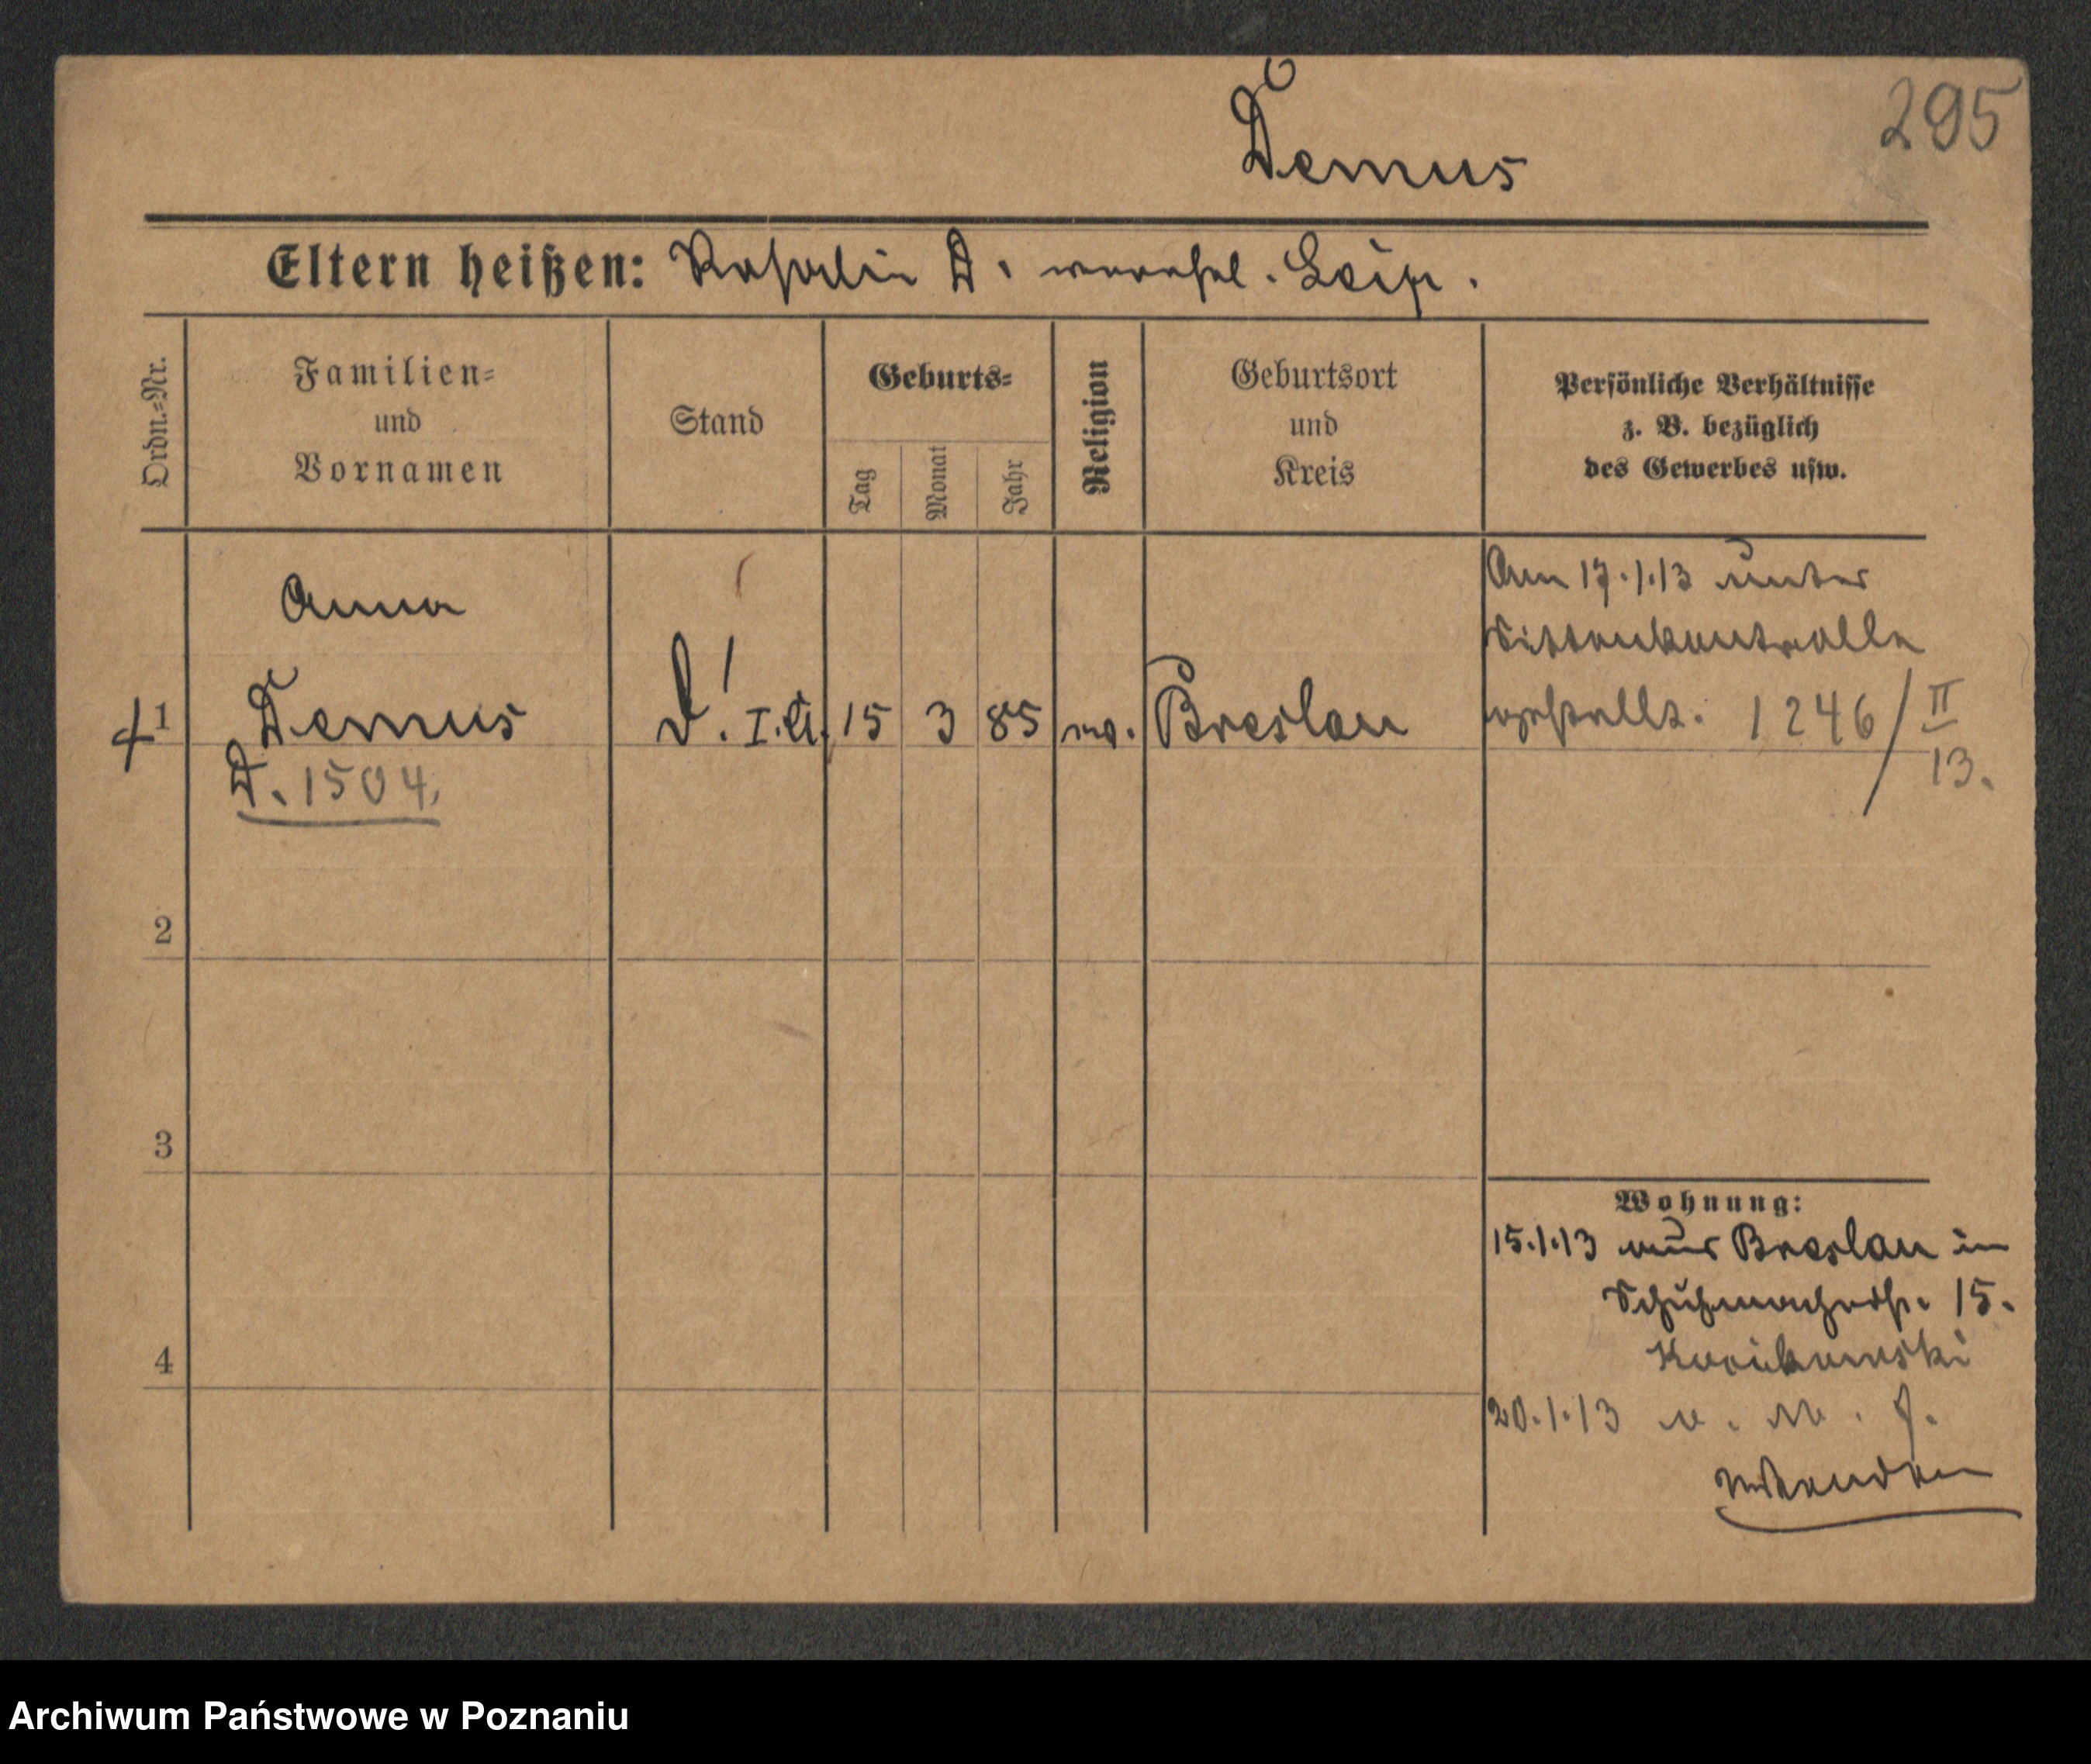 295
Demus
Eltern heißen: Rosalie D. verehel.
Ordn.=Nr.
Familien=
und
Vornamen
Stand
Geburts=
Tag
Monat
Jahr
Religion
Geburtsort
und
Kreis
Persönliche Verhältnisse
z. B. bezüglich
des Gewerbes usw.
Anna
1 Demus
D. 1504.
I.A.
15 3 85
Breslau
Am 17.1.13 unter
Sittenkontrolle
gestellt. 1246/II
13.
2
3
4
Wohnung:
15.1.13 aus Breslau in
Schuhmacherstr. 15.
20.1.13
Archiwum Państwowe w Poznaniu